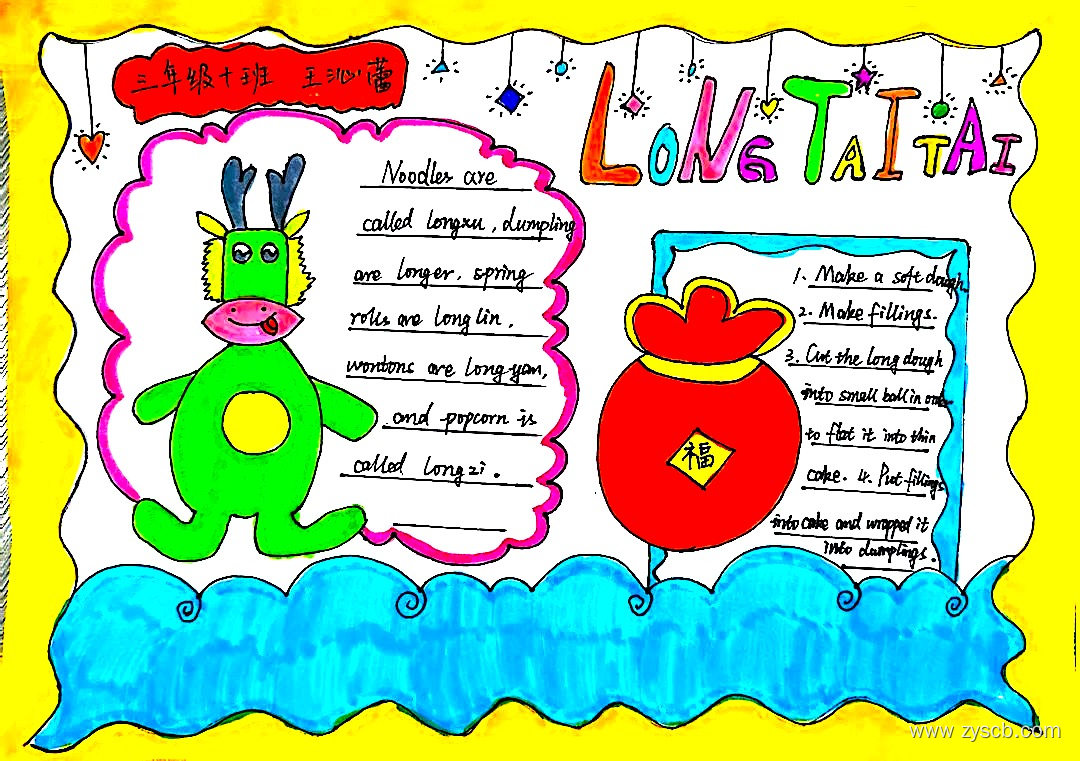 三年级十班 王沁蕾
LONG TAITAI
Noodles are
called longxu, dumpling
are longer, spring
rolls are long lin,
wontons are long yan,
and popcorn is
called longzi.
1. Make a soft dough
2. Make fillings.
3. Cut the long dough
into small ball in order
to flat it into thin
cake. 4. Put fillings
into cake and wrapped it
into dumplings.
福
www.zyscb.com